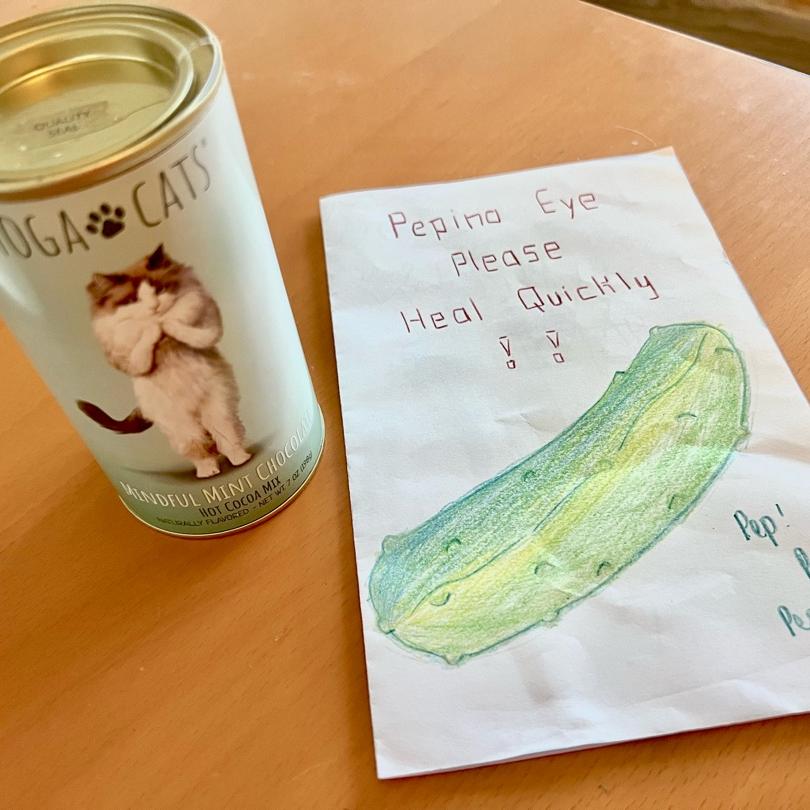 QUALITY
SEAL
YOGA CATS®
MINDFUL MINT CHOCOLATE
HOT COCOA MIX
NATURALLY FLAVORED - NET WT. 7 OZ (198g)
Pepino Eye
Please
Heal Quickly
!!
Pep!